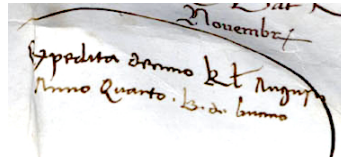 Dat
Novembr
Expedita decimo kl Augusti
Anno Quarto. B. de bucino